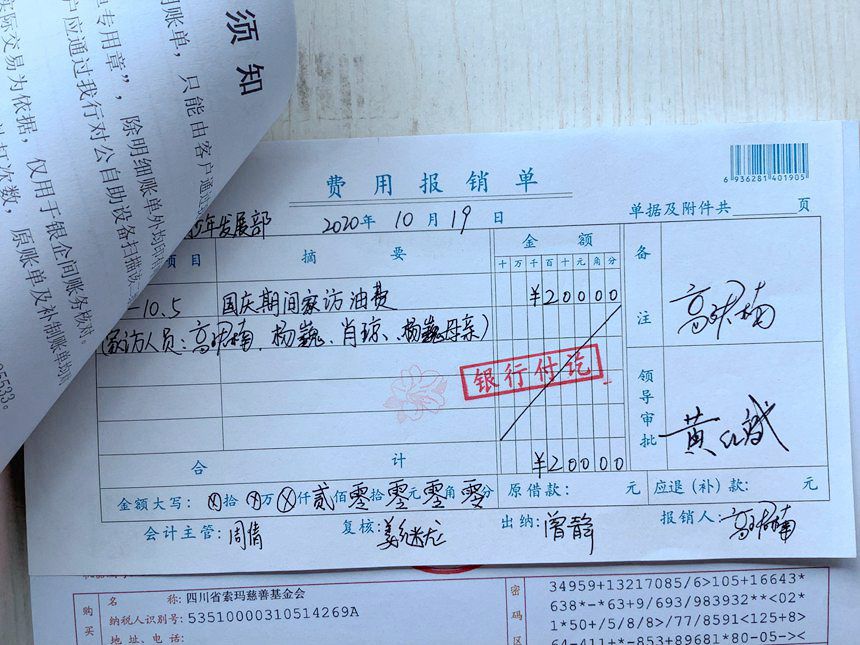 须知
账单，只能由客户通过
专用章”，除明细账单外均
户应通过我行对公自助设备扫描
实际交易为依据，仅用于银企间账务核对。
打次数，原账单及补制账单均
95533。
6 936281 401905
费用报销单
单据及附件共 页
年发展部 2020年 10月 19日
项目 摘要 金额 备注
十万千百十元角分
-10.5 国庆期间家访油费 ¥20000
(家访人员：高瑞楠、杨巍、肖琼、杨巍母亲)
高瑞楠
银行付讫
领导审批
合计 ¥20000
金额大写：ⓧ拾ⓧ万ⓧ仟贰佰零拾零元零角零分 原借款： 元 应退（补）款： 元
会计主管：周倩 复核：姜继龙 出纳：曾静 报销人：高瑞楠
购买
名 称：四川省索玛慈善基金会
纳税人识别号：53510000310514269A
地址、电话：
密码区
34959+13217085/6>105+16643*
638*-*63+9/693/983932**<02*
1*50+/5/8/8>/77/8591<125+8>
64-411+*-853+89681*80-05-><